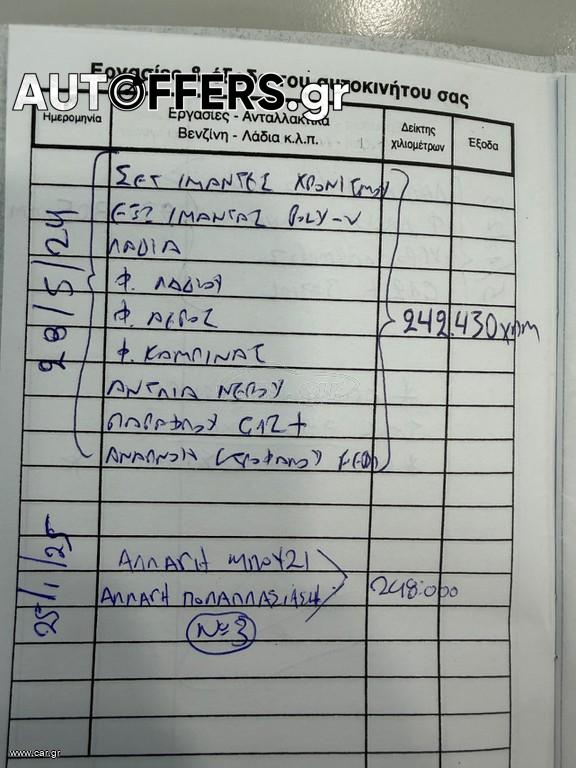 Εργασίες & έξοδα του αυτοκινήτου σας
AUTOFFERS.gr
Ημερομηνία
Εργασίες - Ανταλλακτικά
Βενζίνη - Λάδια κ.λ.π.
Δείκτης
χιλιομέτρων
Έξοδα
28/5/24
ΣΕΤ ΙΜΑΝΤΕΣ ΧΡΟΝΙΣΜΟΥ
ΕΞΩ ΙΜΑΝΤΑΣ POLY-V
ΛΑΔΙΑ
Φ. ΛΑΔΙΟΥ
Φ. ΑΕΡΟΣ
Φ. ΚΑΜΠΙΝΑΣ
ΑΝΤΛΙΑ ΝΕΡΟΥ
ΠΑΡΑΦΛΟΥ G12+
ΑΝΑΠΝΟΗ
242.430 χλμ
25/1/25
ΑΛΛΑΓΗ ΜΠΟΥΖΙ
ΑΛΛΑΓΗ ΠΟΛΑΠΛΑΣΙΑΣΗ
Νο 3
248.000
www.car.gr